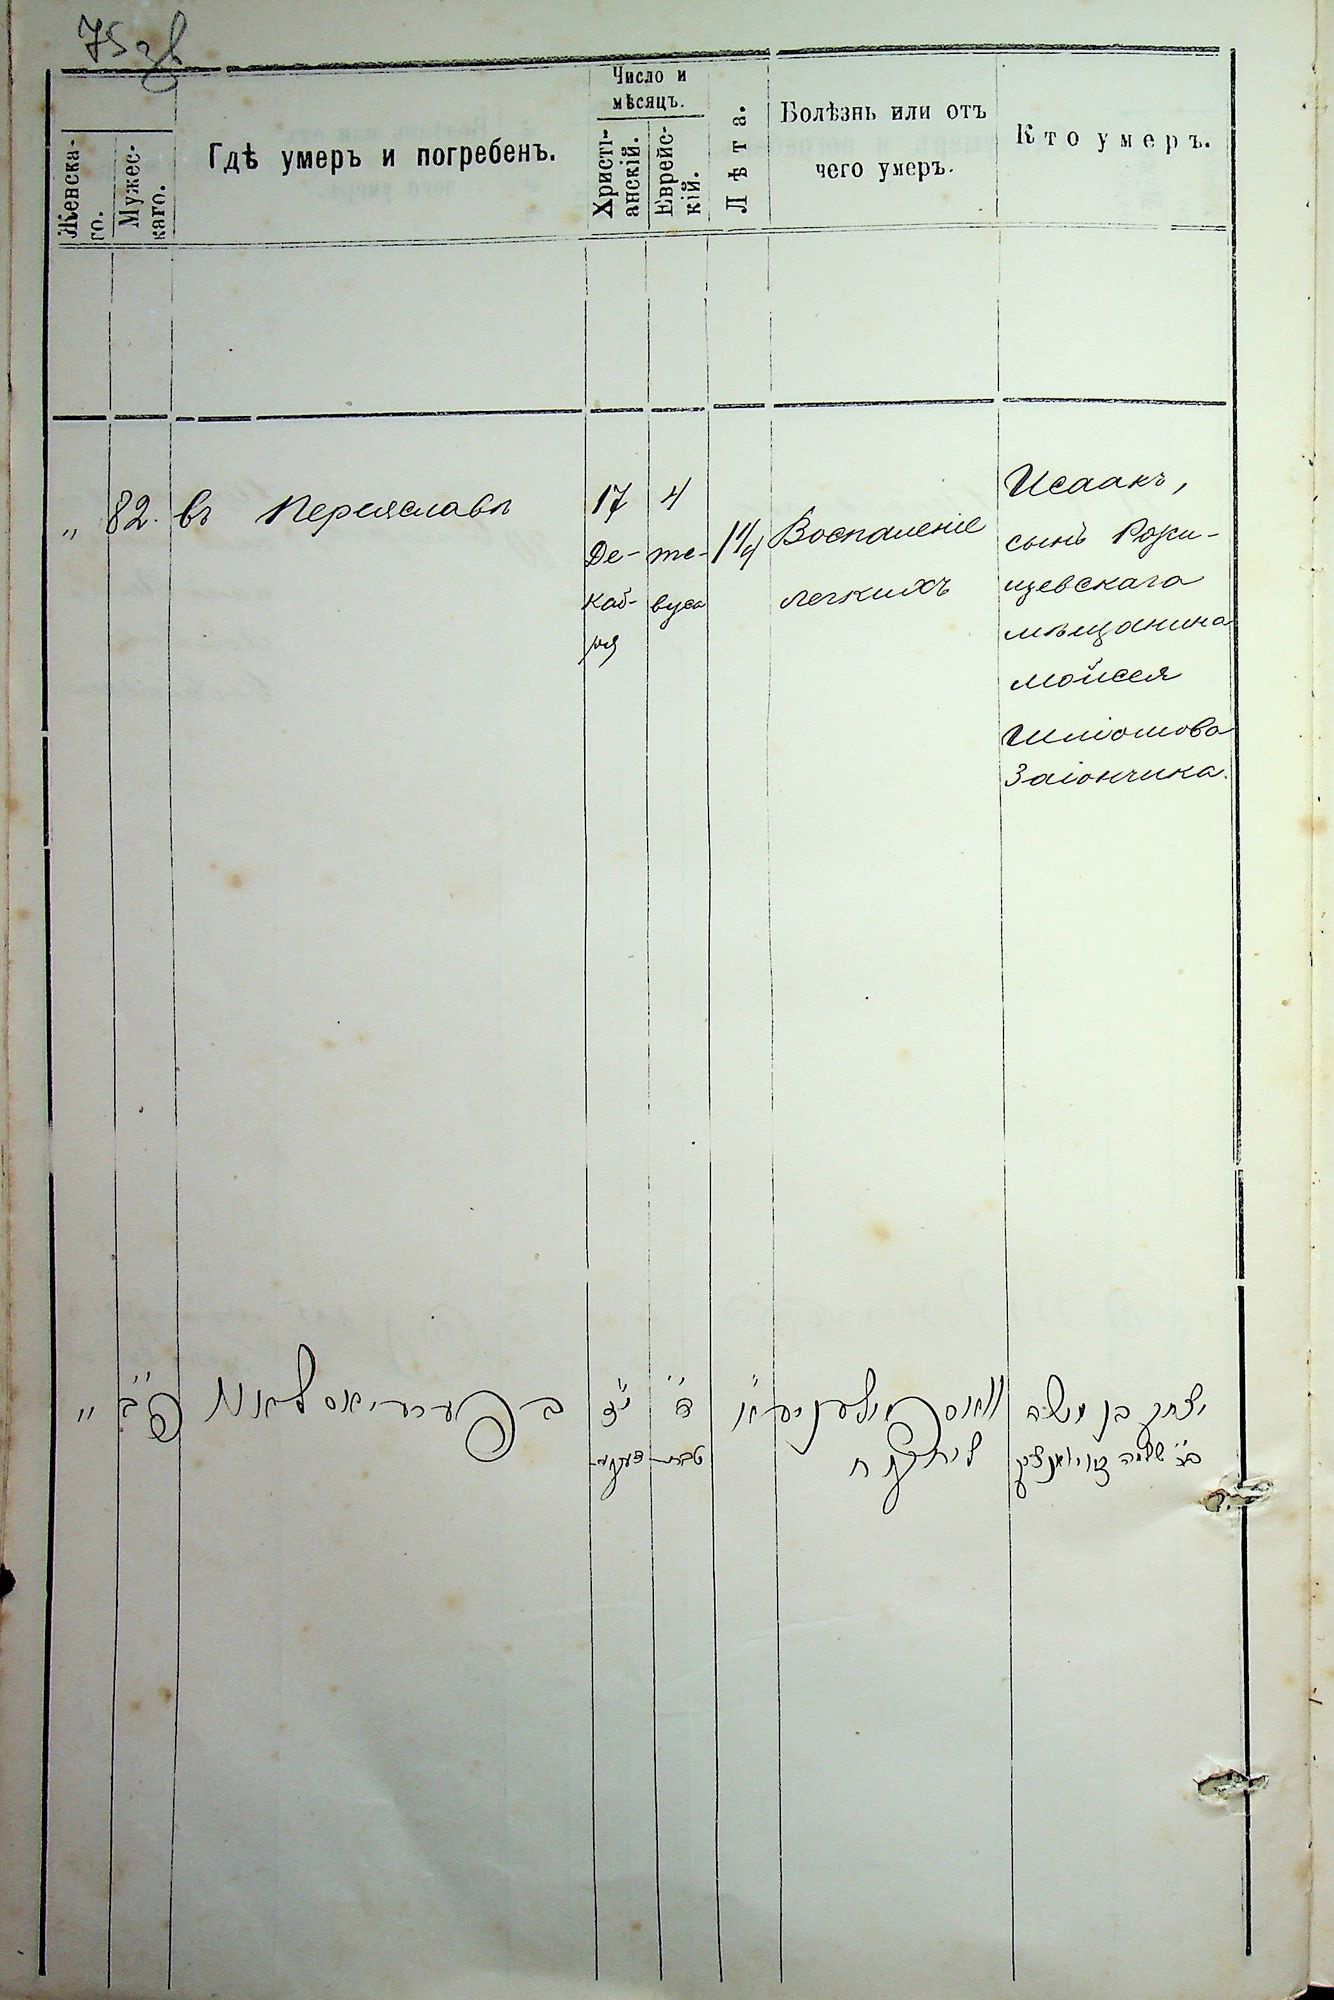 75 зв
Женска-
го.
Мужес-
каго.
Гдѣ умеръ и погребенъ.
Число и
мѣсяцъ.
Христі-
анскій.
Еврейс-
кій.
Лѣта.
Болѣзнь или отъ
чего умеръ.
Кто умеръ.
„ 82. въ Переяславѣ
17
Де-
каб-
ря
4
те-
вуса
Воспаленіе
легкихъ
Исаакъ,
сынъ Рожи-
щевскаго
мѣщанина
Мойсея
Шліомова
Заіончика.
יצחק בן משה
ב"ר שלמה
ד"
טבת
פ"ב
„